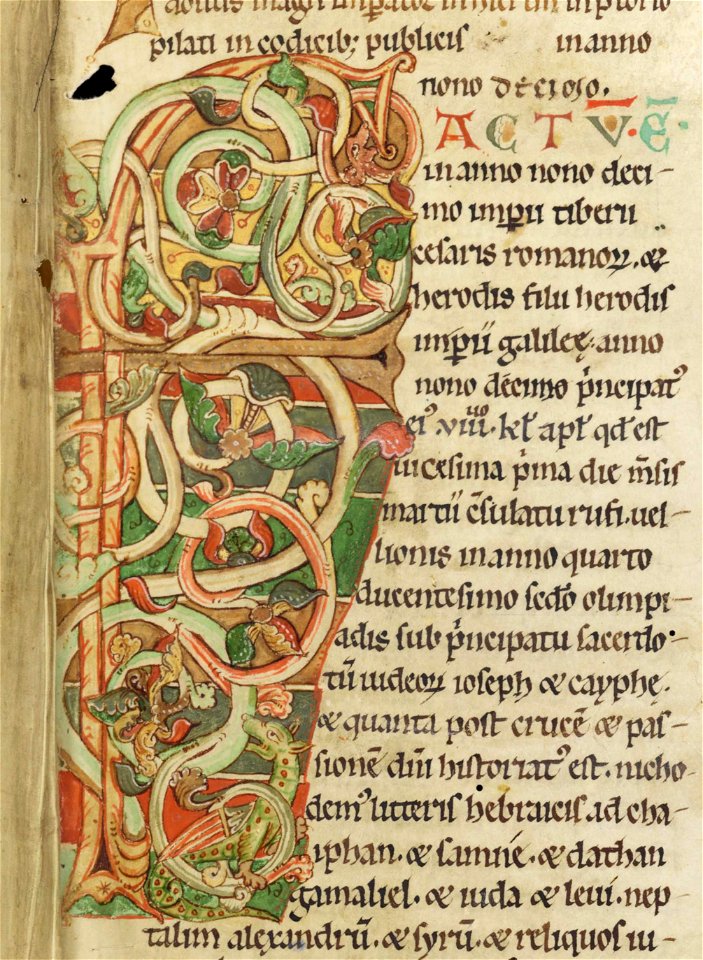 pilati in codicib; publicis in anno
nono decimo.
FACTV̄·Ē·
in anno nono deci-
mo imp̄ii tiberii
cesaris romanoꝝ. &
herodis filii herodis
imp̄ii galileę. anno
nono decimo p̄ncipatꝰ
eiꝰ. viiii. kl̄ apl̄ qd̄ est
uicesima p̄ma die m̄sis
martii c̄sulatu rufi. uel-
lionis in anno quarto
ducentesimo sc̄do olimpi-
adis sub p̄ncipatu sacerdo-
tū iudeoꝝ ioseph & cayphę.
& quanta post crucē & pas-
sionē dn̄i historiatꝰ est. nicho-
demꝰ litteris hebraicis ad cha-
iphan. & samne. & dathan
gamaliel. & iuda & leui. nep-
talim alexandrū. & syrū. & reliquos iu-